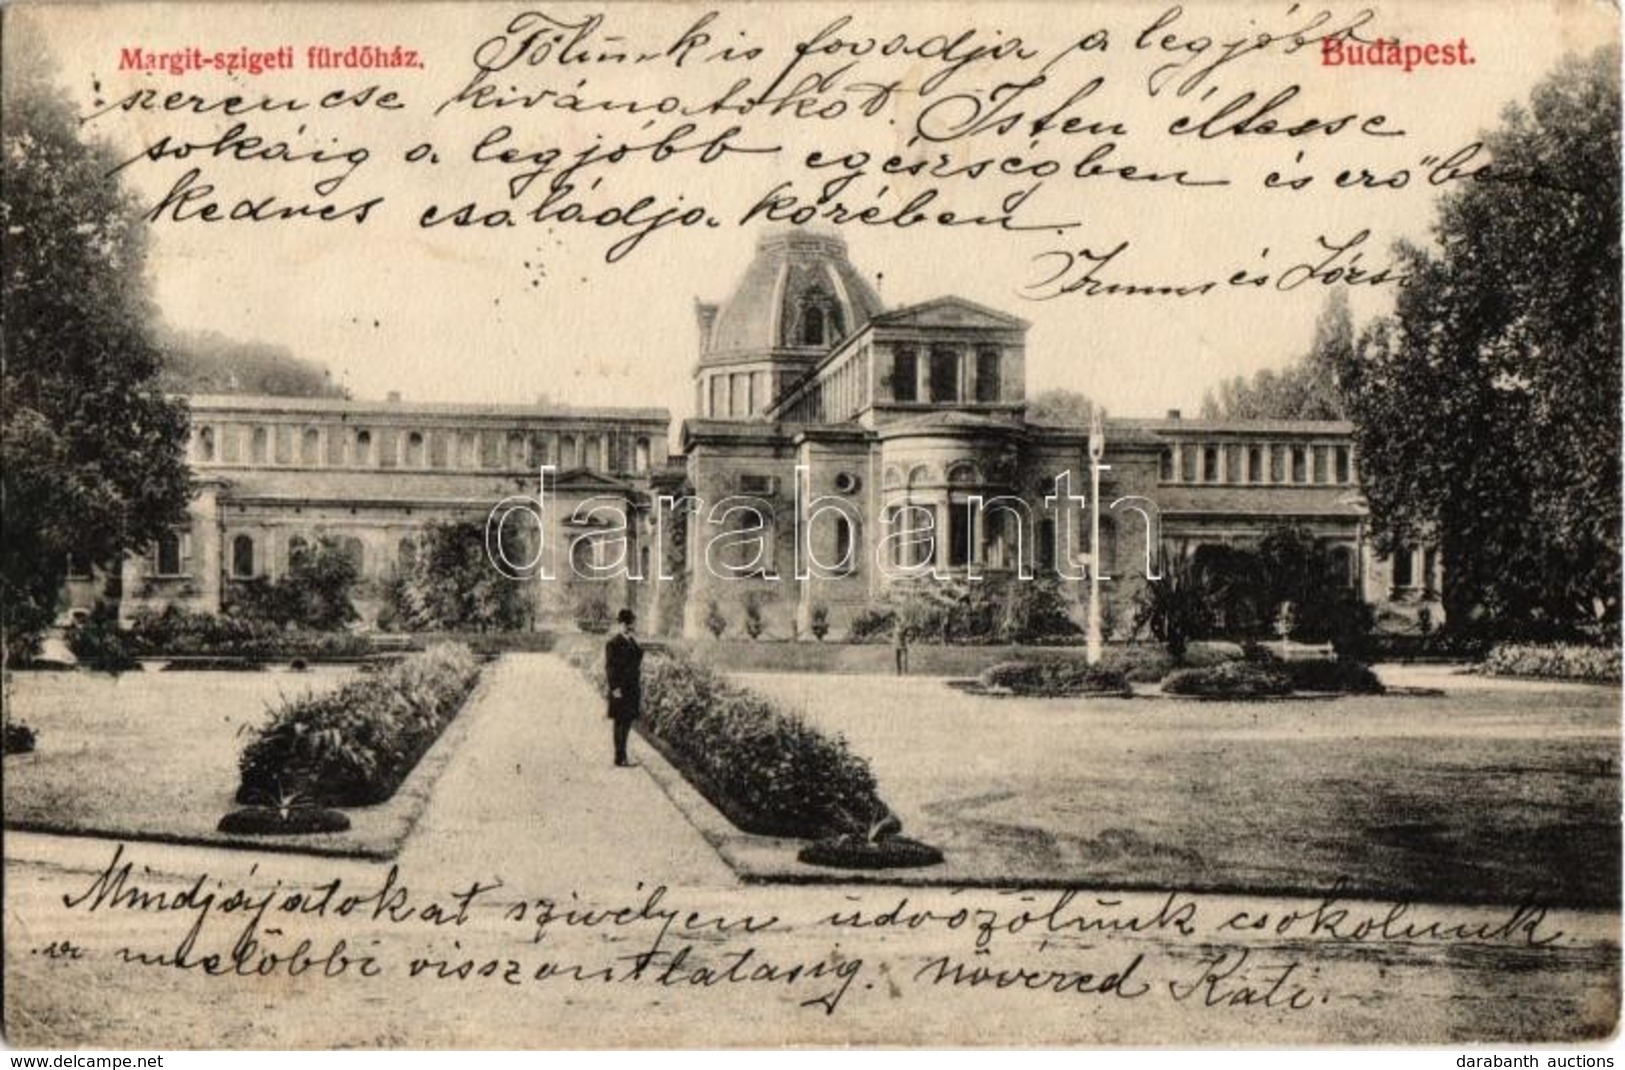 Margit-szigeti fürdőház.
Budapest.
Tőlünk is fogadja a legjobb
szerencse kivánatokat. Isten éltesse
sokáig a legjobb egészségben és erőben
kedves családja körében.
és Józsi
Mindjájatokat szivélyen üdvözölünk csokolunk
a mielőbbi visszontlatasig. Nővéred Kati.
darabanth
www.delcampe.net
darabanth auctions